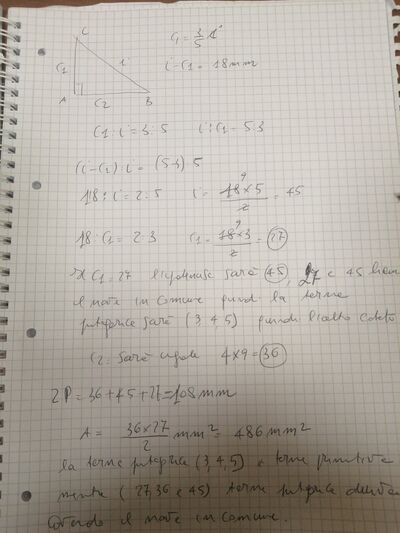 C
C1 = 3/5 i
i
C1
i - C1 = 18 mm
A
C2
B
C1 : i = 3 : 5 i : C1 = 5 : 3
(i - C1) : i = (5-3) : 5
18 : i = 2 : 5 i = 18 × 5 / 2 = 45
9
18 : C1 = 2 : 3 C1 = 18 × 3 / 2 = 27
9
C1 = 27 l'ipotenusa sarà 45, 27 e 45
il nove in comune quindi la terna
sarà (3, 4, 5) quindi l'altro cateto
C2 sarà uguale 4 × 9 = 36
2P = 36 + 45 + 27 = 108 mm
A = 36 × 27 / 2 mm² = 486 mm²
la terna (3, 4, 5) è terna primitiva
mentre (27, 36 e 45) terna
avendo il nove in comune.